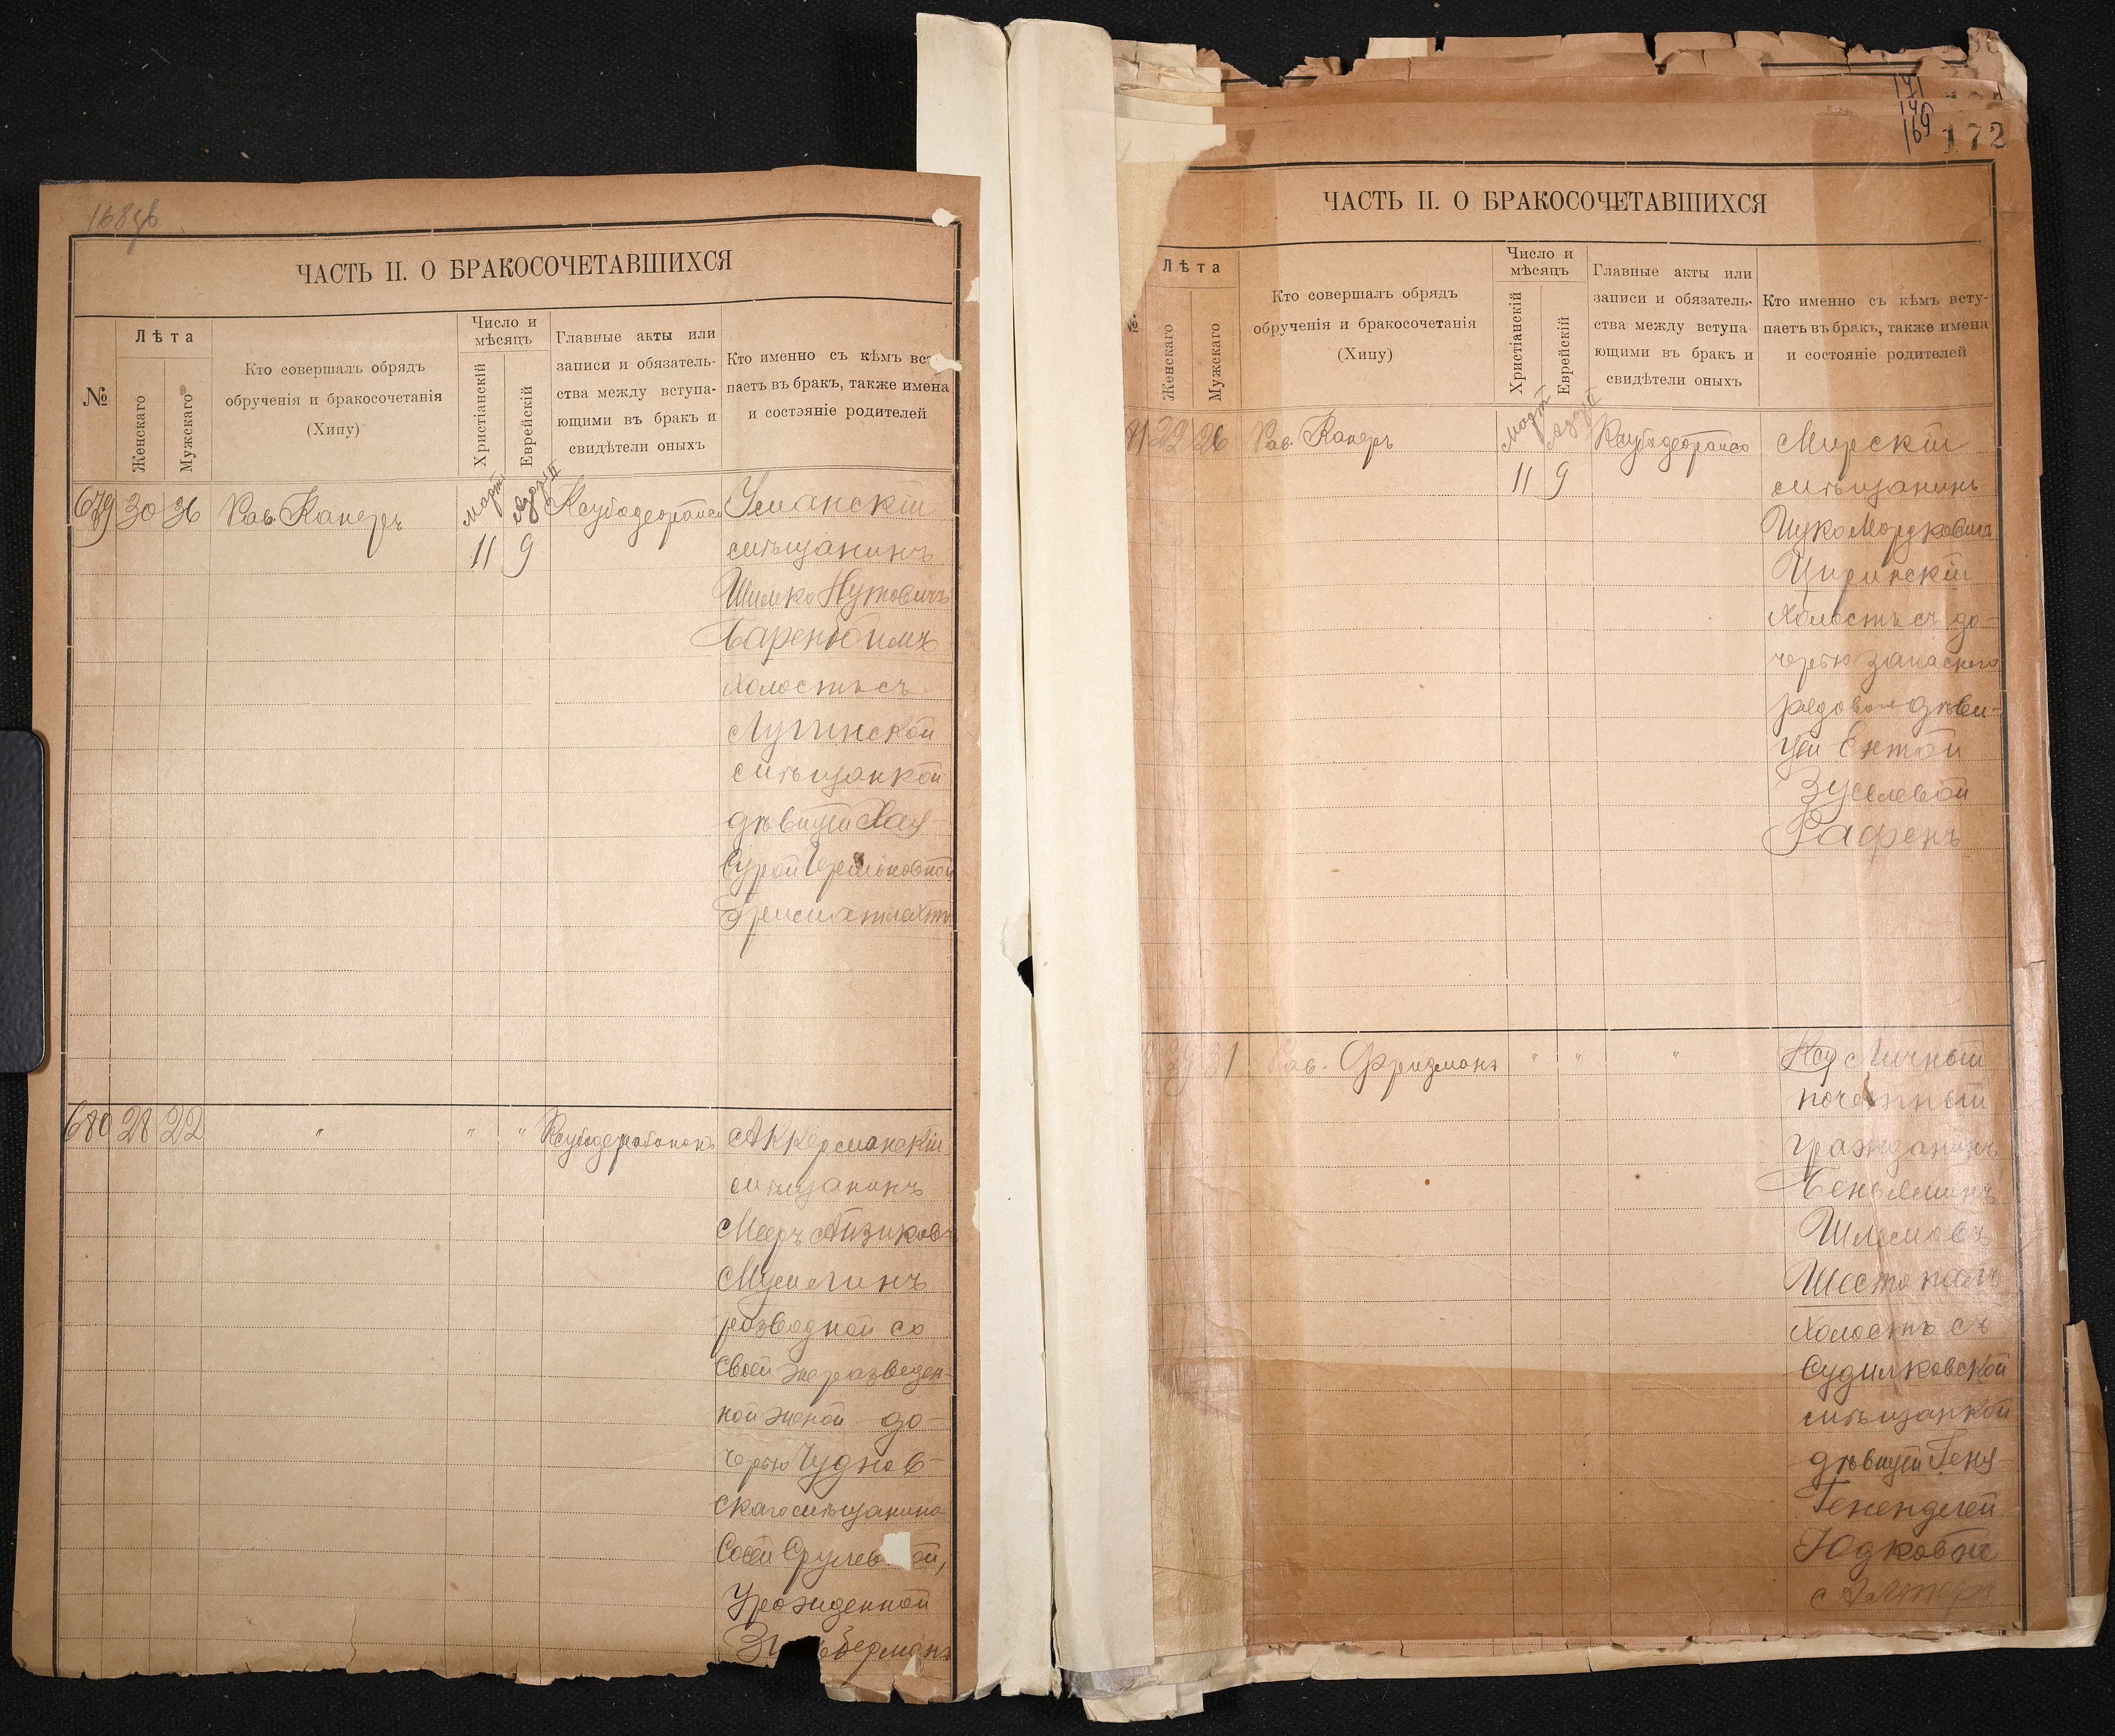 168об
ЧАСТЬ II. О БРАКОСОЧЕТАВШИХСЯ
№
Лѣта
Женскаго
Мужскаго
Кто совершалъ обрядъ
обрученія и бракосочетанія
(Хипу)
Число и
мѣсяцъ
Христіанскій
Еврейскій
Главные акты или
записи и обязатель-
ства между вступа-
ющими въ бракъ и
свидѣтели оныхъ
Кто именно съ кѣмъ всту
паетъ въ бракъ, также имена
и состояніе родителей
679 30 36 Рав. Каперъ
Март 11
Адаръ II 9
Уманскій
мѣщанинъ
Шимко Нутовичъ
Баренбоимъ
холостъ съ
Лугинской
мѣщанкой
дѣвицей Хая-
Сурой
680 28 22 " " "
Аккерманскій
мѣщанинъ
Мееръ Айзиков
разводной со
своей же разведен-
ной женой до-
черью Чуднов-
скаго мѣщанина
Сосей
Урожденной
171
170
169
172
ЧАСТЬ II. О БРАКОСОЧЕТАВШИХСЯ
№
Лѣта
Женскаго
Мужскаго
Кто совершалъ обрядъ
обрученія и бракосочетанія
(Хипу)
Число и
мѣсяцъ
Христіанскій
Еврейскій
Главные акты или
записи и обязатель-
ства между вступа-
ющими въ бракъ и
свидѣтели оныхъ
Кто именно съ кѣмъ всту-
паетъ въ бракъ, также имена
и состояніе родителей
22 26 Рав. Каперъ
Март 11
Адаръ II 9
Мирскій
мѣщанинъ
Ицко Мордковичъ
Циринскій
холостъ съ до-
черью запаснаго
рядового дѣви-
цей Ентой
Зуселевой
Рафенъ
31 Рав. Фридманъ " " "
Личный
почетный
гражданинъ
Беньяминъ
Шлемовъ
Шестопалъ
холостъ съ
Судилковской
мѣщанкой
дѣвицей Геня-
Генендлей
Юдковне
Альтеръ